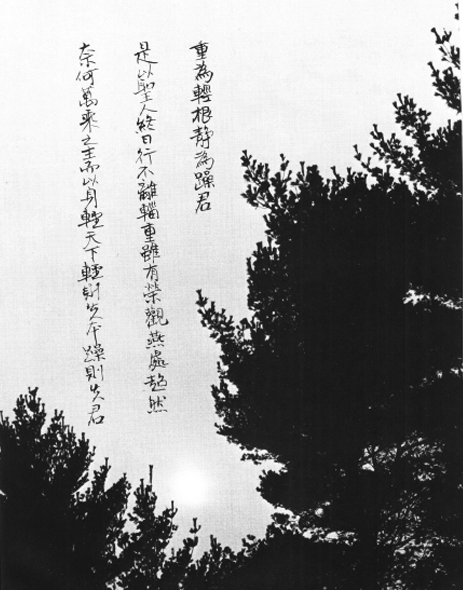 重為輕根静為躁君
是以聖人終日行不離輜重雖有榮觀燕處超然
奈何萬乘之主而以身輕天下輕則失本躁則失君